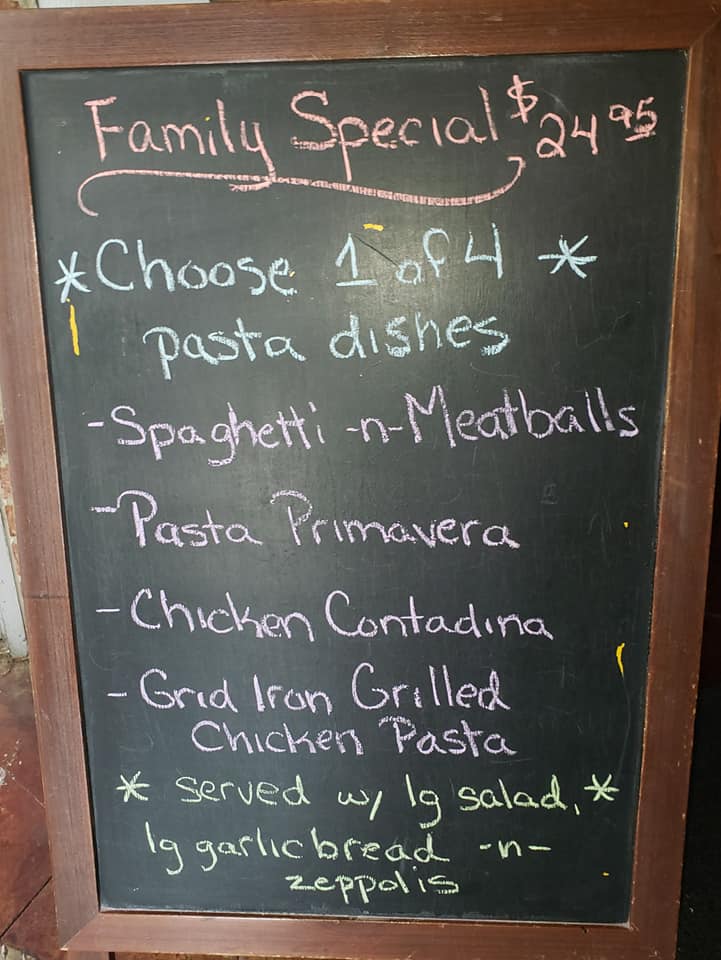 Family Special $24.95
*Choose 1 of 4 *
pasta dishes
-Spaghetti -n-Meatballs
-Pasta Primavera
-Chicken Contadina
-Grid Iron Grilled
Chicken Pasta
* served w/ lg salad, *
lg garlic bread -n-
zeppolis